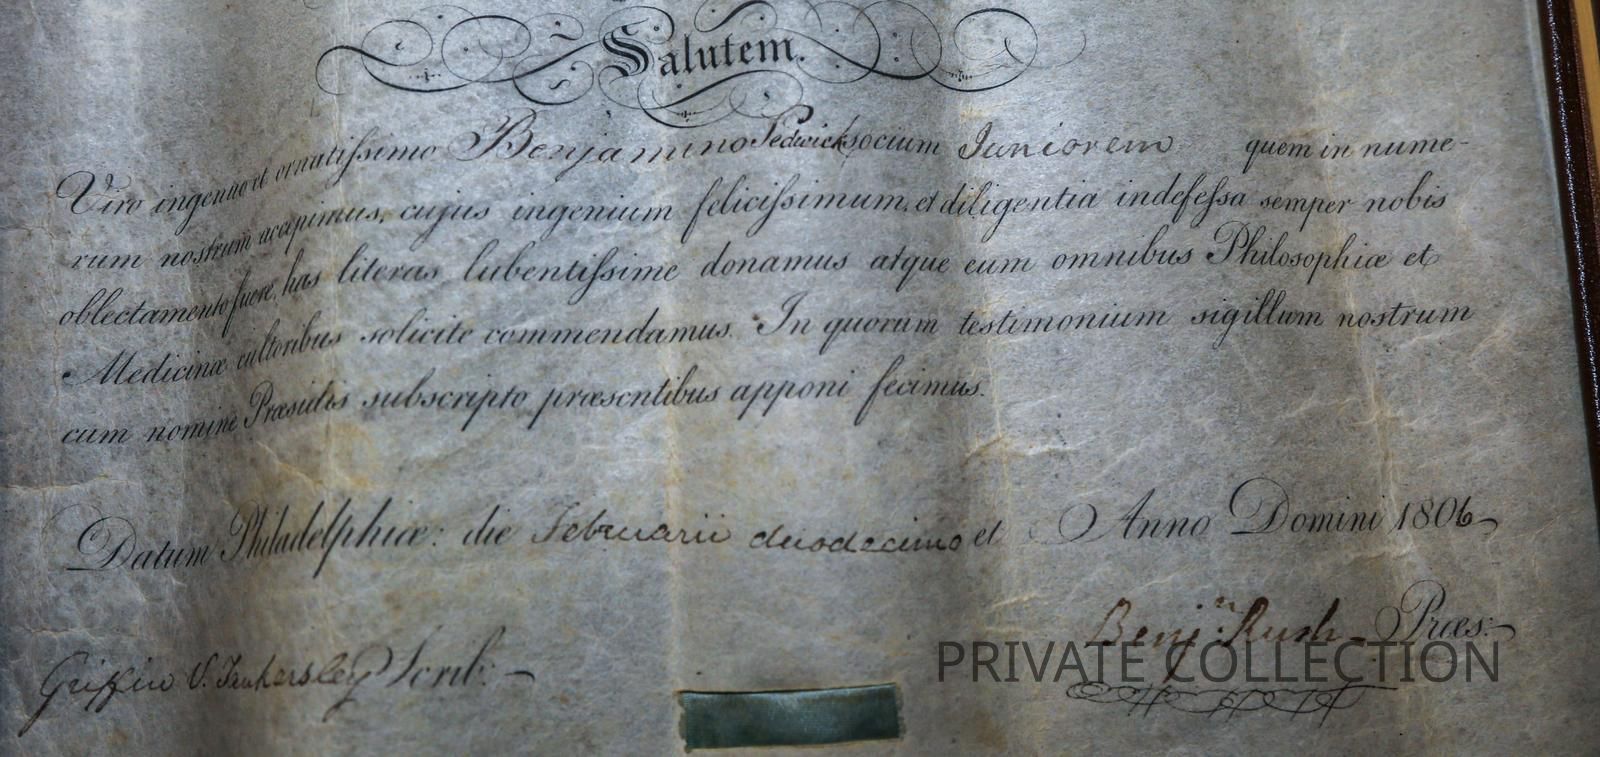 Salutem.
Viro ingenuo et ornatissimo Benjamino Sedwick socium Juniorem quem in nume-
rum nostrum accepimus, cujus ingenium felicissimum, et diligentia indefessa semper nobis
oblectamento fuere, has literas lubentissime donamus atque eum omnibus Philosophiæ et
Medicinæ cultoribus solicite commendamus. In quorum testimonium sigillum nostrum
cum nomine Præsidis subscripto præsentibus apponi fecimus.
Datum Philadelphiæ: die Februarii duodecimo et Anno Domini 1806
Benjn: Rush Præs:
Griffin Scrib:
PRIVATE COLLECTION